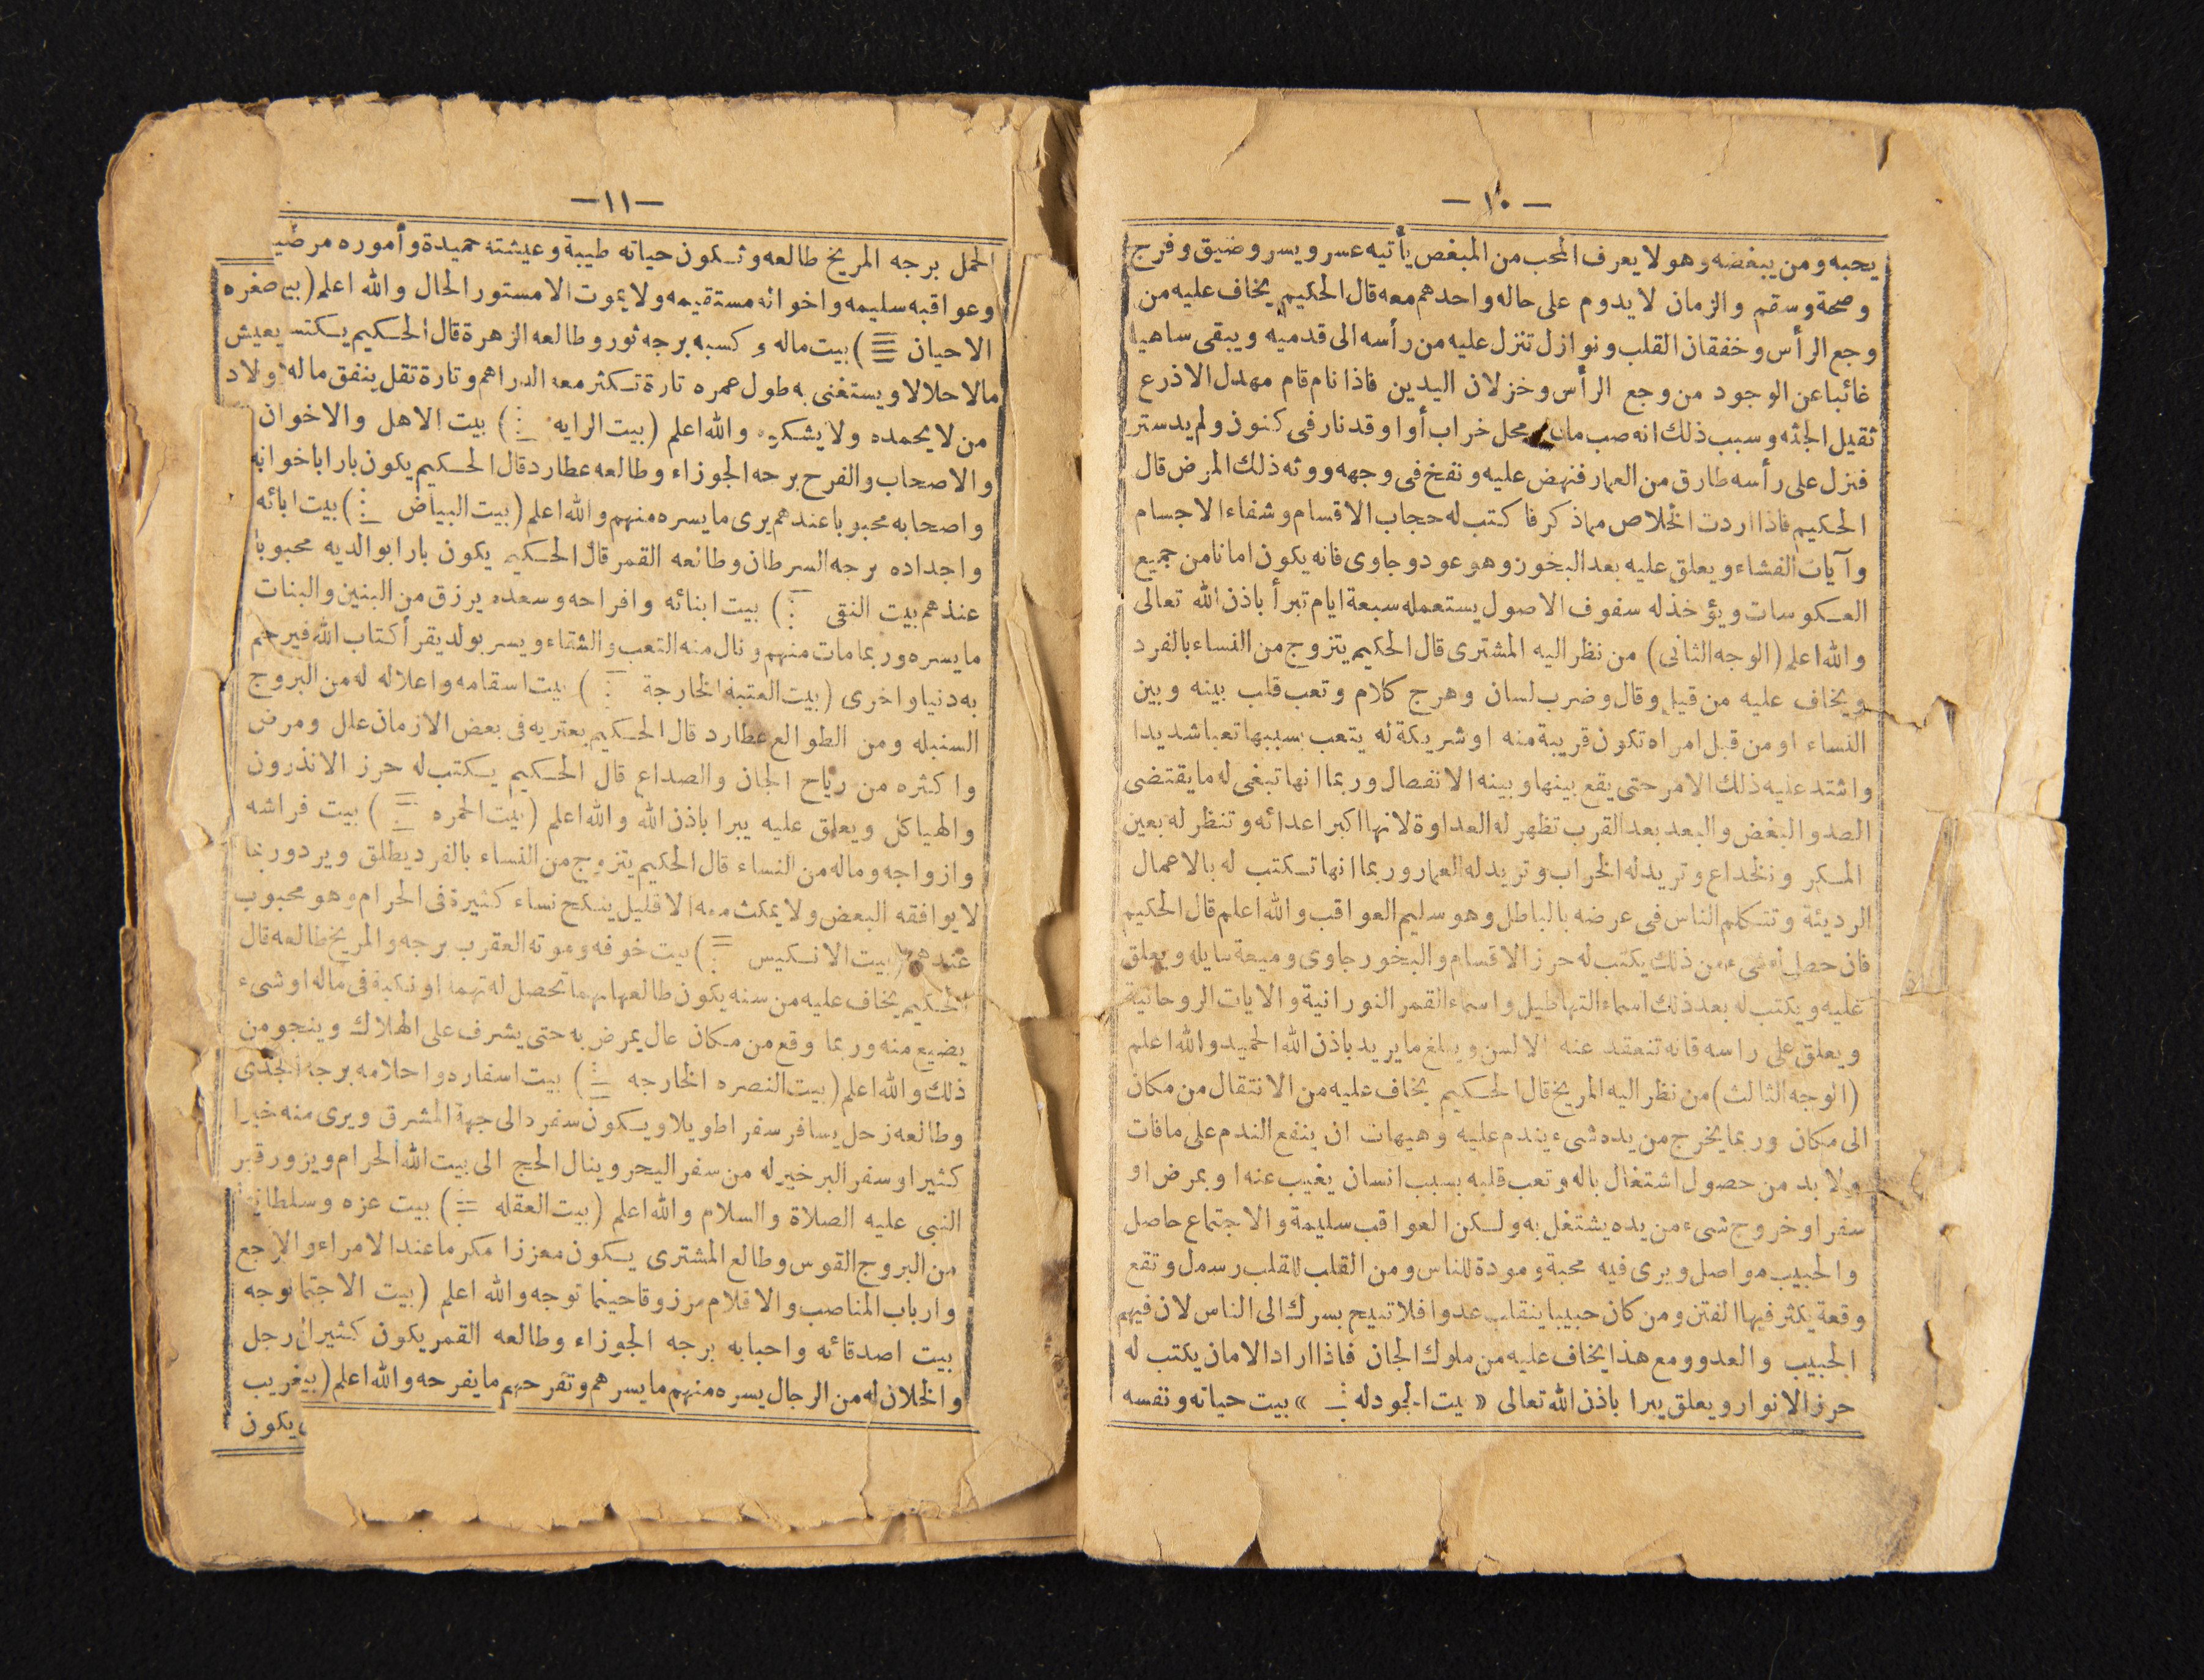 — ١٠ —
يحبه ومن يبغضه وهو لا يعرف المحب من المبغض يأتيه عسر ويسر وضيق وفرج
وصحة وسقم والزمان لا يدوم على حاله واحد هم معه قال الحكيم يخاف عليه من
وجع الرأس وخفقان القلب ونوازل تنزل عليه من رأسه الى قدميه ويبقى ساهيا
غائبا عن الوجود من وجع الرأس وخزلان اليدين فاذا نام قام مهدل الاذرع
ثقيل الجثه وسبب ذلك انه صب ماء محل خراب أو اوقد نار فى كنون ولم يدستر
فنزل على رأسه طارق من العمار فنهض عليه ونفخ فى وجهه وورثه ذلك المرض قال
الحكيم فاذا اردت الخلاص مماذكر فاكتب له حجاب الاقسام وشفاء الاجسام
وآيات الفشاء ويعلق عليه بعد البخور وهو عود وجاوى فانه يكون امانا من جميع
العكوسات ويؤخذ له سفوف الاصول يستعمله سبعة ايام تبرأ باذن الله تعالى
والله اعلم (الوجه الثانى) من نظر اليه المشترى قال الحكيم يتزوج من النساء بالفرد
ويخاف عليه من قيل وقال وضرب لسان وهرج كلام وتعب قلب بينه وبين
النساء او من قبل امراه تكون قريبة منه او شريكة له يتعب بسببها تعبا شديدا
واشتد عليه ذلك الامر حتى يقع بينها وبينه الانفصال وربما انها تبغى له ما يقتضى
الصد والبغض والبعد بعد القرب تظهر له العداوة لانها اكبر اعدائه وتنظر له بعين
المكر والخداع وتريد له الخراب وتريد له العمار وربما انها تكتب له بالاعمال
الرديئة وتتكلم الناس فى عرضه بالباطل وهو سليم العواقب والله اعلم قال الحكيم
فان حصل له شىء من ذلك يكتب له حرز الاقسام والبخور جاوى وميعة سايله ويعلق
عليه ويكتب له بعد ذلك اسماء التهاطيل واسماء القمر النورانية والايات الروحانية
ويعلق على راسه فانه تنعقد عنه الالسن ويبلغ ما يريد باذن الله الحميد والله اعلم
(الوجه الثالث) من نظر اليه المريخ قال الحكيم يخاف عليه من الانتقال من مكان
الى مكان وربما يخرج من يده شىء يندم عليه وهيهات ان ينفع الندم على ما فات
ولا بد من حصول اشتغال باله وتعب قلبه بسبب انسان يغيب عنه او بمرض او
سفر او خروج شىء من يده يشتغل به ولكن العواقب سليمة والاجتماع حاصل
والحبيب مواصل ويرى فيه محبة ومودة للناس ومن القلب للقلب رسمل وتقع
وقعة يكثر فيها الفتن ومن كان حبيبا ينقلب عدوا فلا تبيح بسرك الى الناس لان فيهم
الحبيب والعدو ومع هذا يخاف عليه من ملوك الجان فاذا اراد الامان يكتب له
حرز الانوار ويعلق يبرا باذن الله تعالى « بيت الجودله » بيت حياته ونفسه
— ١١ —
الحمل برجه المريخ طالعه وتكون حياته طيبة وعيشته حميدة وأموره مرضي
وعواقبه سليمه واخوانه مستقيمه ولا يموت الا مستور الحال والله اعلم (بي صغره
الاحيان ) بيت ماله وكسبه برجه ثور وطالعه الزهرة قال الحكيم يكتس يعيش
مالا حلالا ويستغنى به طول عمره تارة تكثر معه الدراهم وتارة تقل ينفق ماله ولاد
من لا يحمده ولا يشكره والله اعلم (بيت الرايه ) بيت الاهل والاخوان
والاصحاب والفرح برجه الجوزاء وطالعه عطارد قال الحكيم يكون بارا باخوانه
واصحابه محبوبا عندهم يرى ما يسره منهم والله اعلم (بيت البياض ) بيت ابائه
واجداده برجه السرطان وطالعه القمر قال الحكيم يكون بارا بوالديه محبوبا
عندهم بيت النقى ) بيت ابنائه وافراحه وسعده يرزق من البنين والبنات
ما يسره وربما مات منهم ونال منه التعب والشقاء ويسر بولد يقرأ كتاب الله فيرحم
به دنيا واخرى (بيت العتبة الخارجة ) بيت اسقامه واعلاله له من البروج
السنبله ومن الطوالع عطارد قال الحكيم يعتريه فى بعض الازمان علل ومرض
واكثره من رياح الجان والصداع قال الحكيم يكتب له حرز الانذرون
والهياكل ويعلق عليه يبرا باذن الله والله اعلم (بيت الحمره ) بيت فراشه
وازواجه وماله من النساء قال الحكيم يتزوج من النساء بالفرد يطلق ويرد وربما
لا يوافقه البعض ولا يمكث معه الا قليل ينكح نساء كثيرة فى الحرام وهو محبوب
عندهم (بيت الانكيس ) بيت خوفه وموته العقرب برجه والمريخ طالعه قال
الحكيم يخاف عليه من سنه يكون طالعها بهما تحصل له تهمة او نكبة فى ماله او شىء
يضيع منه وربما وقع من مكان عال يمرض به حتى يشرف على الهلاك وينجو من
ذلك والله اعلم (بيت النصره الخارجه ) بيت اسفاره واحلامه برجه الجدى
وطالعه زحل يسافر سفرا طويلا ويكون سفره الى جهة المشرق ويرى منه خيرا
كثيرا وسفر البر خير له من سفر البحر وينال الحج الى بيت الله الحرام ويزور قبر
النبى عليه الصلاة والسلام والله اعلم (بيت العقله ) بيت عزه وسلطانه
من البروج القوس وطالع المشترى يكون معززا مكرما عند الامراء والا رجع
وارباب المناصب والاقلام مرزوقا حينما توجه والله اعلم (بيت الاجتما بوجه
بيت اصدقائه واحبابه برجه الجوزاء وطالعه القمر يكون كثير ال رجل
والخلان له من الرجال يسره منهم ما يسرهم وتفرحهم ما يفرحه والله اعلم (بي غريب
يكون